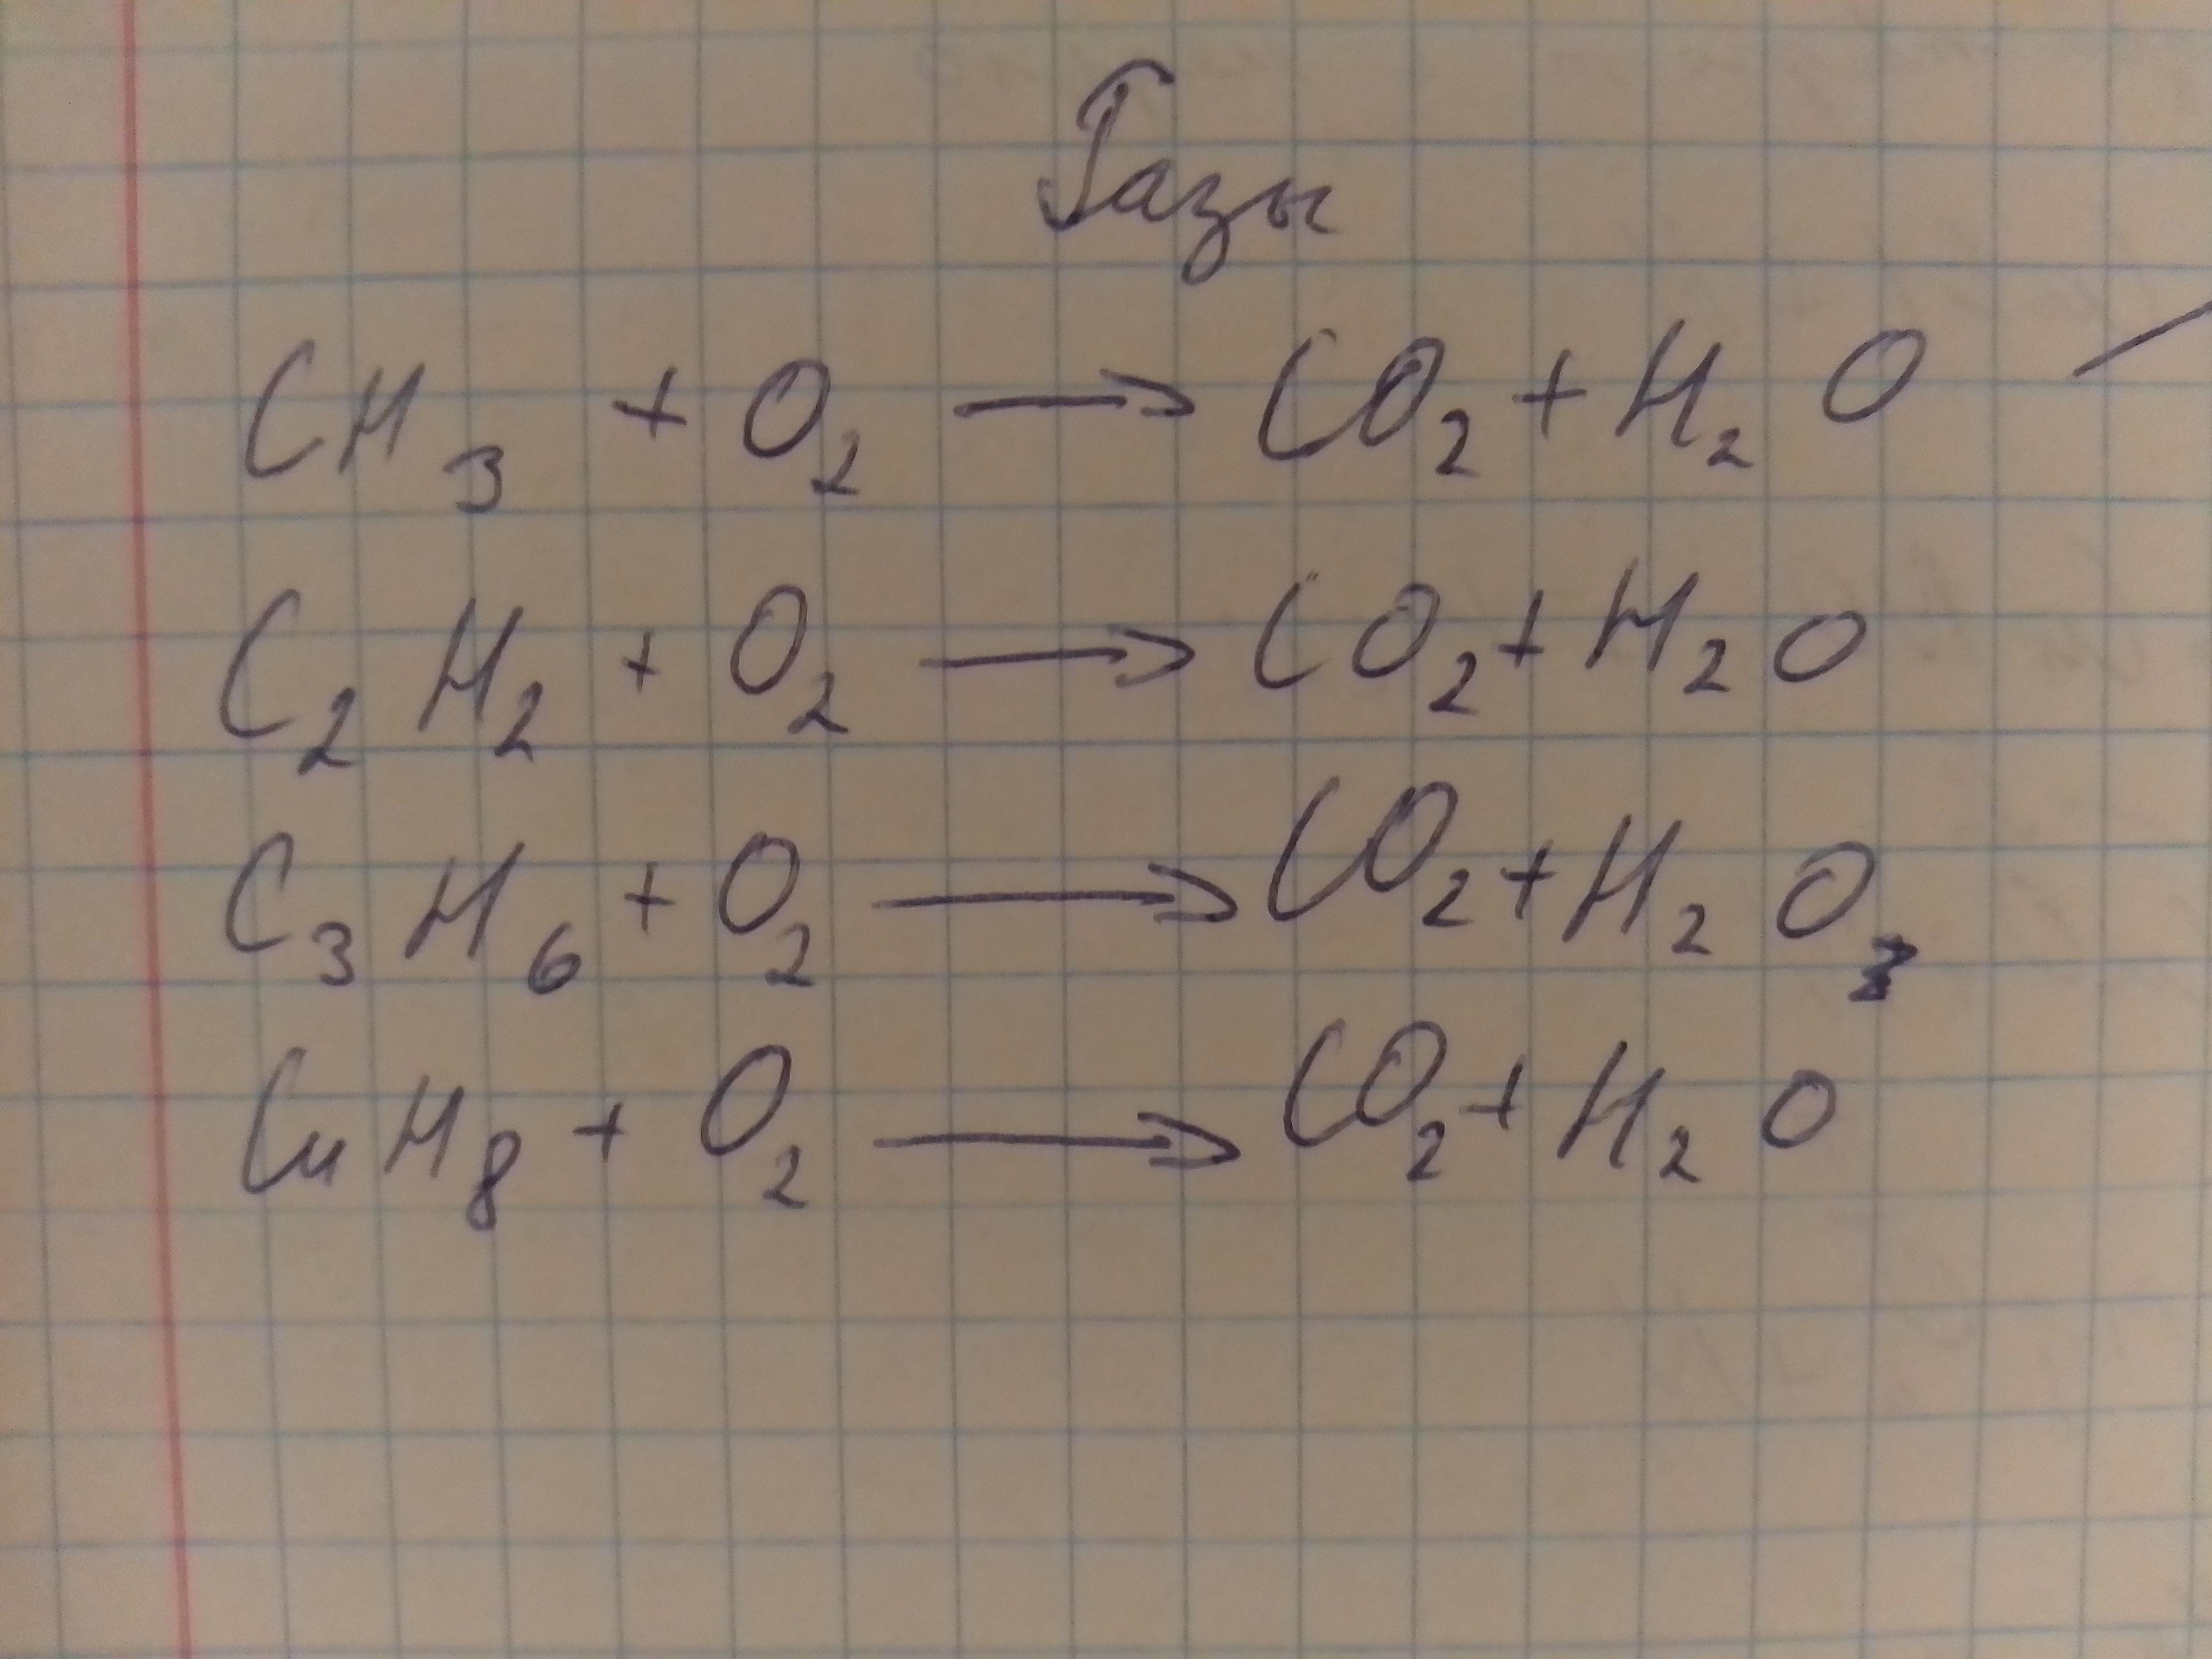 Газы
CH₃ + O₂ → CO₂ + H₂O
C₂H₂ + O₂ → CO₂ + H₂O
C₃H₆ + O₂ → CO₂ + H₂O
C₄H₈ + O₂ → CO₂ + H₂O